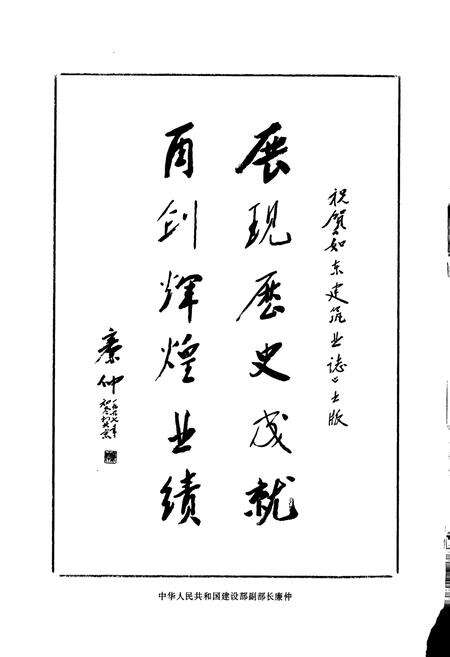 祝贺《如东建筑业誌》出版
展现历史成就
再创辉煌业绩
廉仲
一九九七年
中华人民共和国建设部副部长廉仲